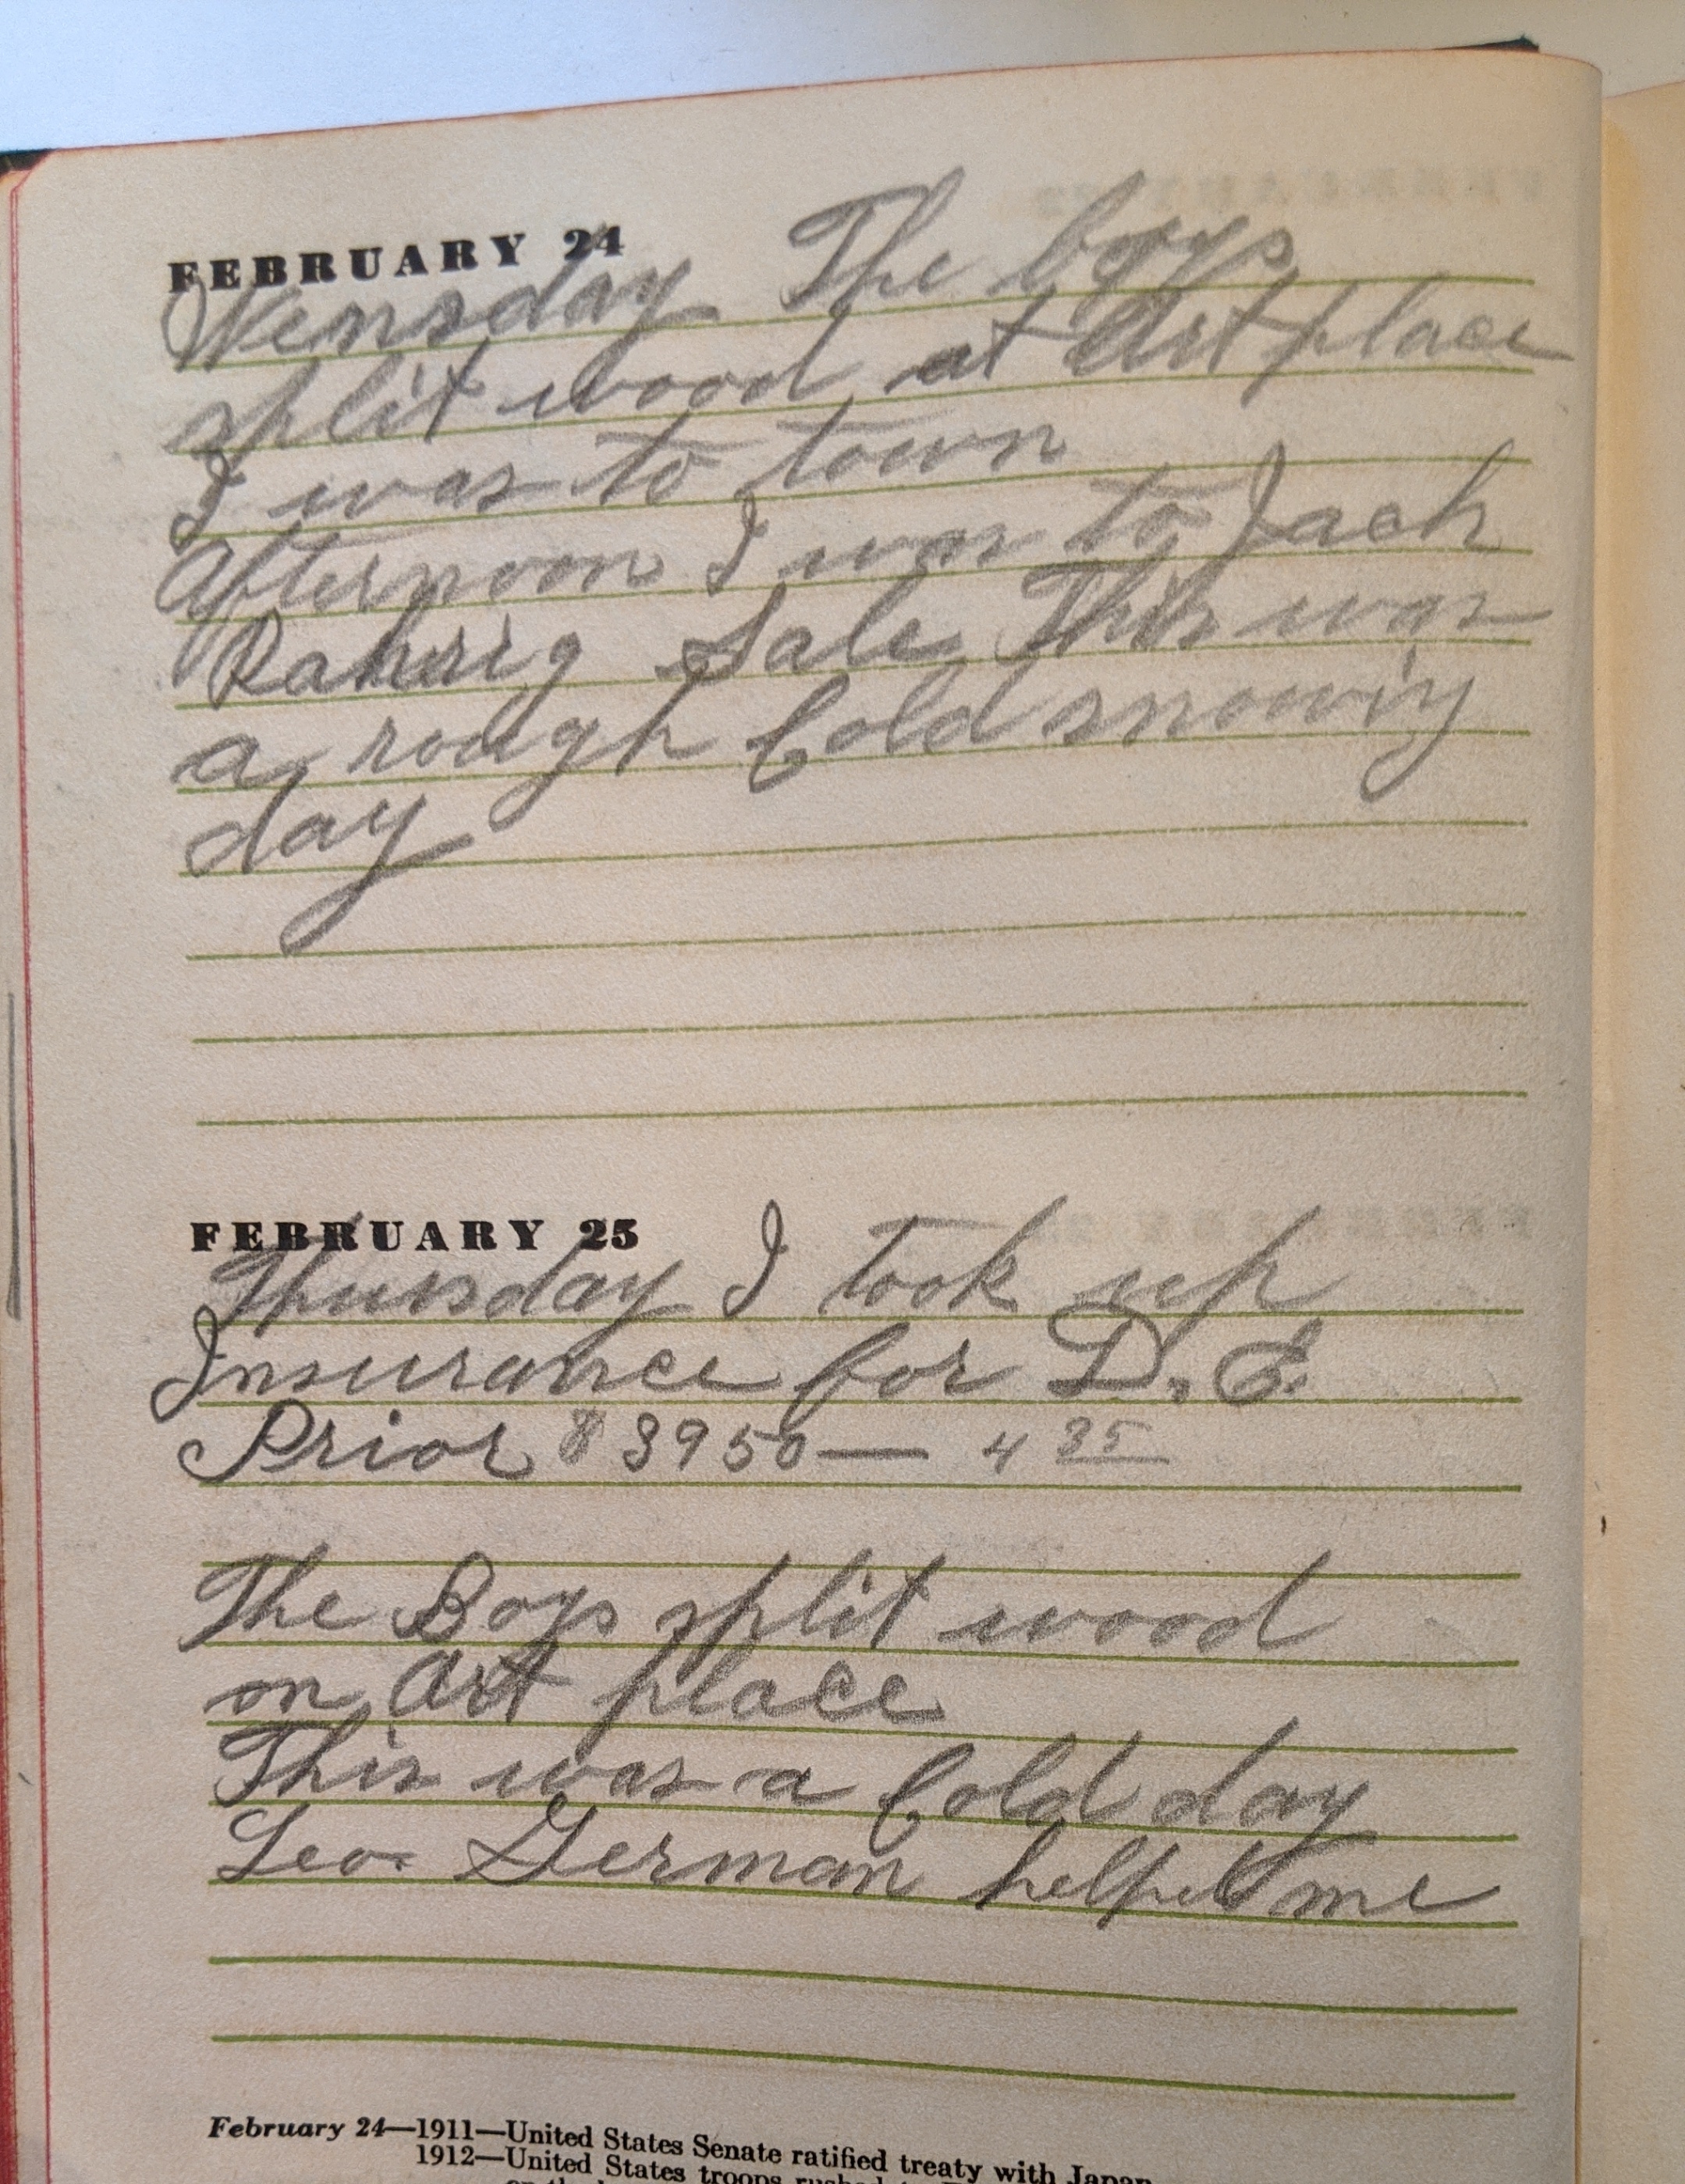 FEBRUARY 24
Wensday The boys
split wood at Art place
I was to town
Afternoon I was to Jach
Rahrig Sale This was
a rough Cold snowiy
day
FEBRUARY 25
Thursday I took up
Insurance for D. E.
Prior $3950— 4 35
The Boys split wood
on Art place
This was a Cold day
Leo German helped me
February 24—1911—United States Senate ratified treaty with Japan
1912—United States troops rushed